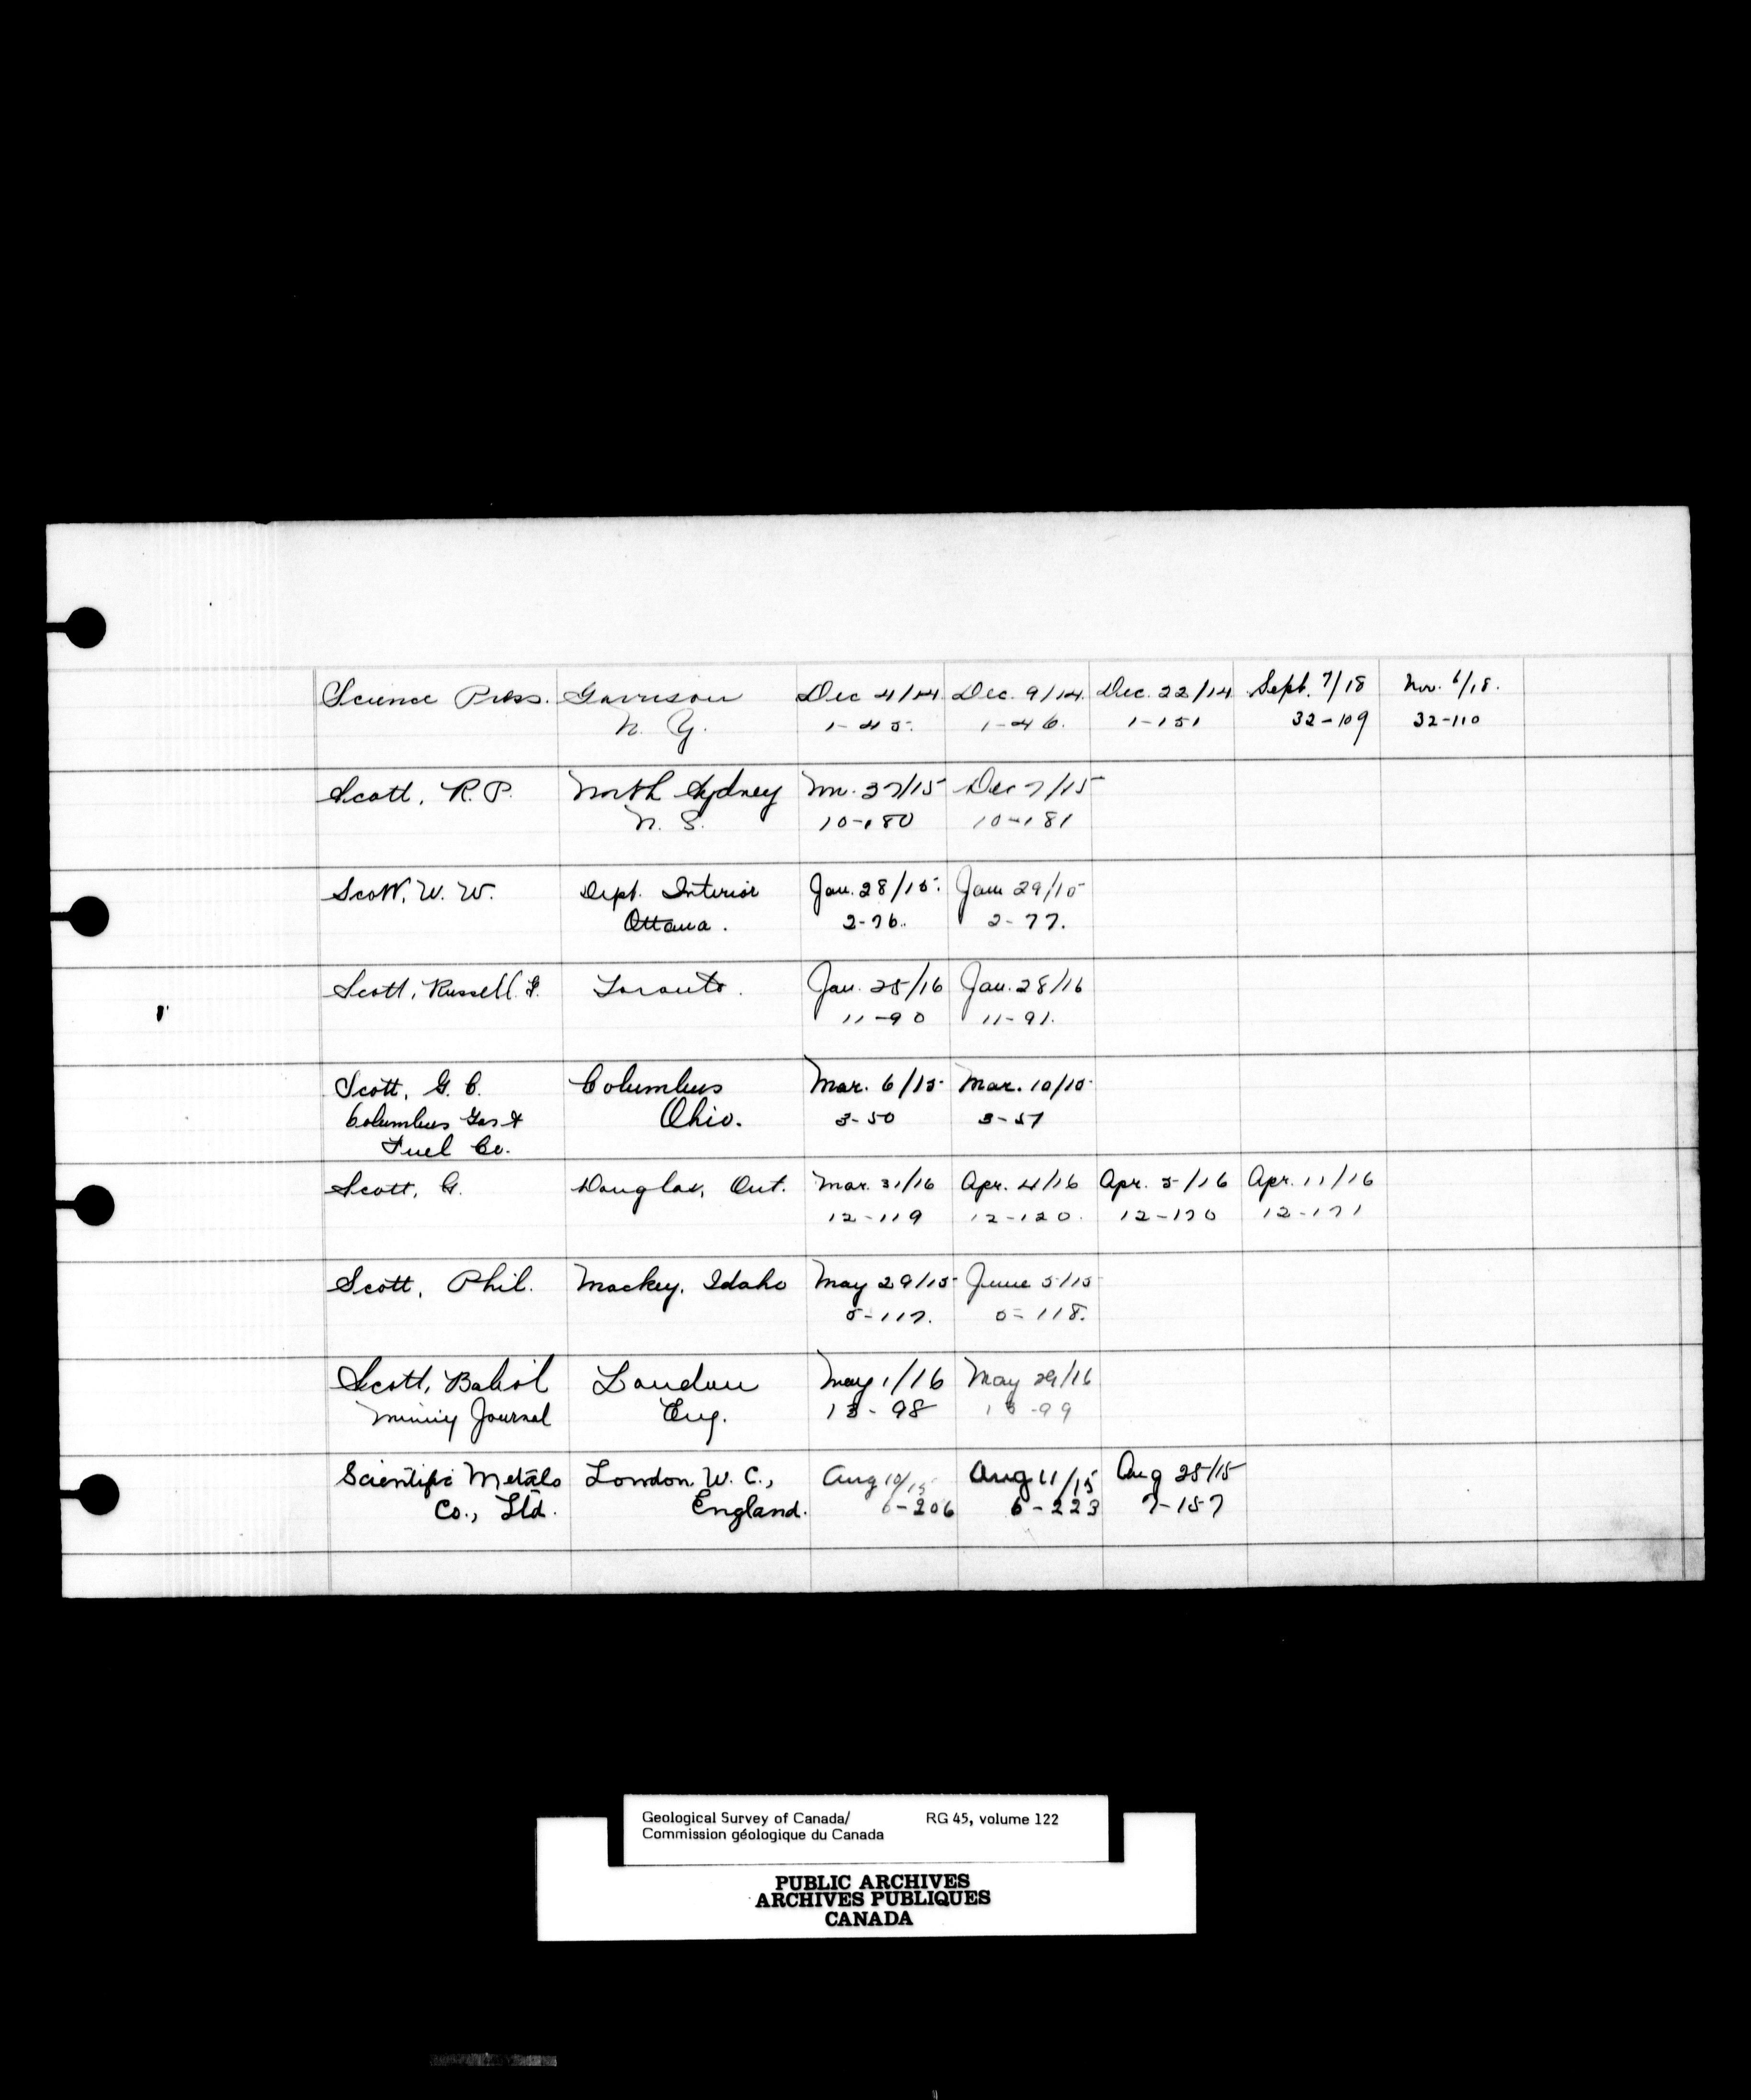 Science Press. Garrison Dec 4/14. Dec. 9/14. Dec. 22/14 Sept. 7/18 Nov. 6/18.
N. Y. 1-45. 1-46. 1-151 32-109 32-110
Scott, R. P. North Sydney Nov. 27/15 Dec 7/15
N. S. 10-180 10-181
Scott, W. W. Dept. Interior Jan. 28/15. Jan 29/15
Ottawa. 2-76. 2-77.
Scott, Russell F. Toronto. Jan. 25/16 Jan. 28/16
11-90 11-91.
Scott, G. C. Columbus Mar. 6/15 Mar. 10/15
Columbus Gas & Ohio. 3-50 3-51
Fuel Co.
Scott, G. Douglas, Ont. Mar. 31/16 Apr. 4/16 Apr. 5/16 Apr. 11/16
12-119 12-120. 12-170 12-171
Scott, Phil. Mackey, Idaho May 29/15 June 5/15
5-117. 5-118.
Scott, London May 1/16 May 29/16
Mining Journal Eng. 13-98 13-99
Scientific Metals London W. C., Aug 10/15 Aug 11/15 Aug 25/15
Co., Ltd. England. 6-206 6-223 7-157
Geological Survey of Canada/ RG 45, volume 122
Commission géologique du Canada
PUBLIC ARCHIVES
ARCHIVES PUBLIQUES
CANADA